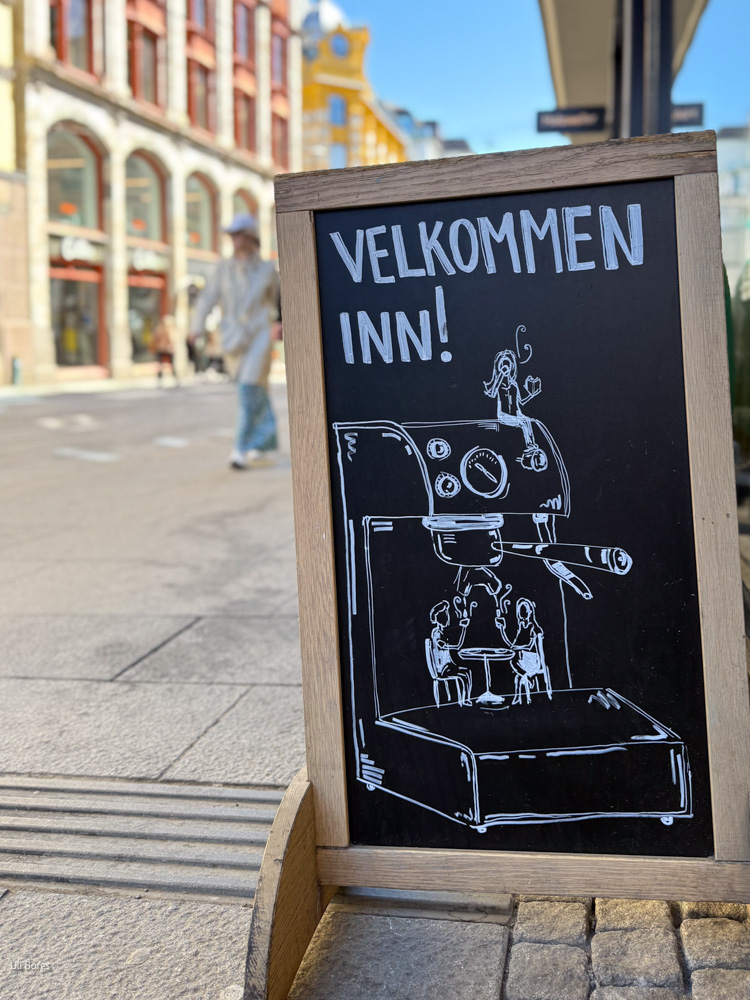 VELKOMMEN
INN!
Uli Borgs